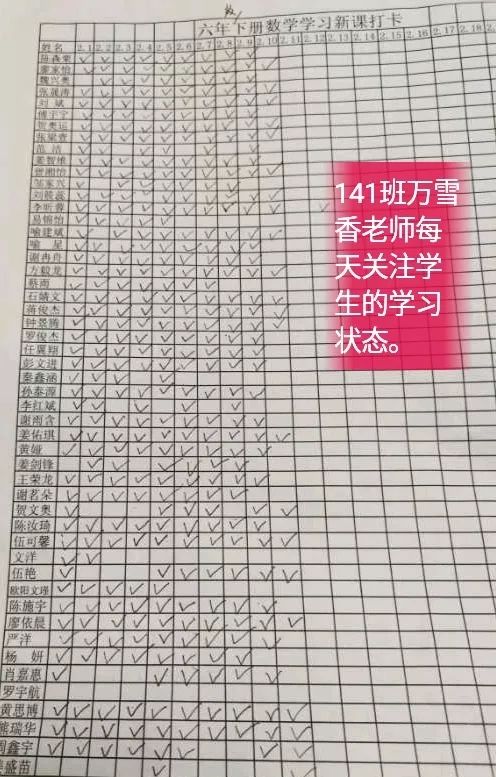 六年下册数学学习新课打卡
姓名 2.1 2.2 2.3 2.4 2.5 2.6 2.7 2.8 2.9 2.10 2.11 2.12 2.13 2.14 2.15 2.16 2.17 2.18
廖家怡
魏兴奥
张晟涛
刘斌
傅宇宇
贺奥运
张梁萱
范浩
姜智维
曾湘怡
邹家兴
刘筱蕊
李昕蓉
易锦怡
喻建斌
喻星
谢冉冉
方毅龙
蔡雨
石婧文
蒋俊杰
钟景腾
罗俊杰
任翼翔
彭文进
秦鑫涵
孙泰源
李红斌
谢雨含
姜佑琪
黄娅
姜剑锋
王荣龙
谢茗朵
贺文奥
陈汝琦
伍可馨
文洋
伍艳
欧阳文瑾
陈施宇
廖依晨
严洋
杨妍
肖嘉惠
罗宇航
黄思博
熊瑞华
周鑫宇
盛苗
141班万雪
香老师每
天关注学
生的学习
状态。